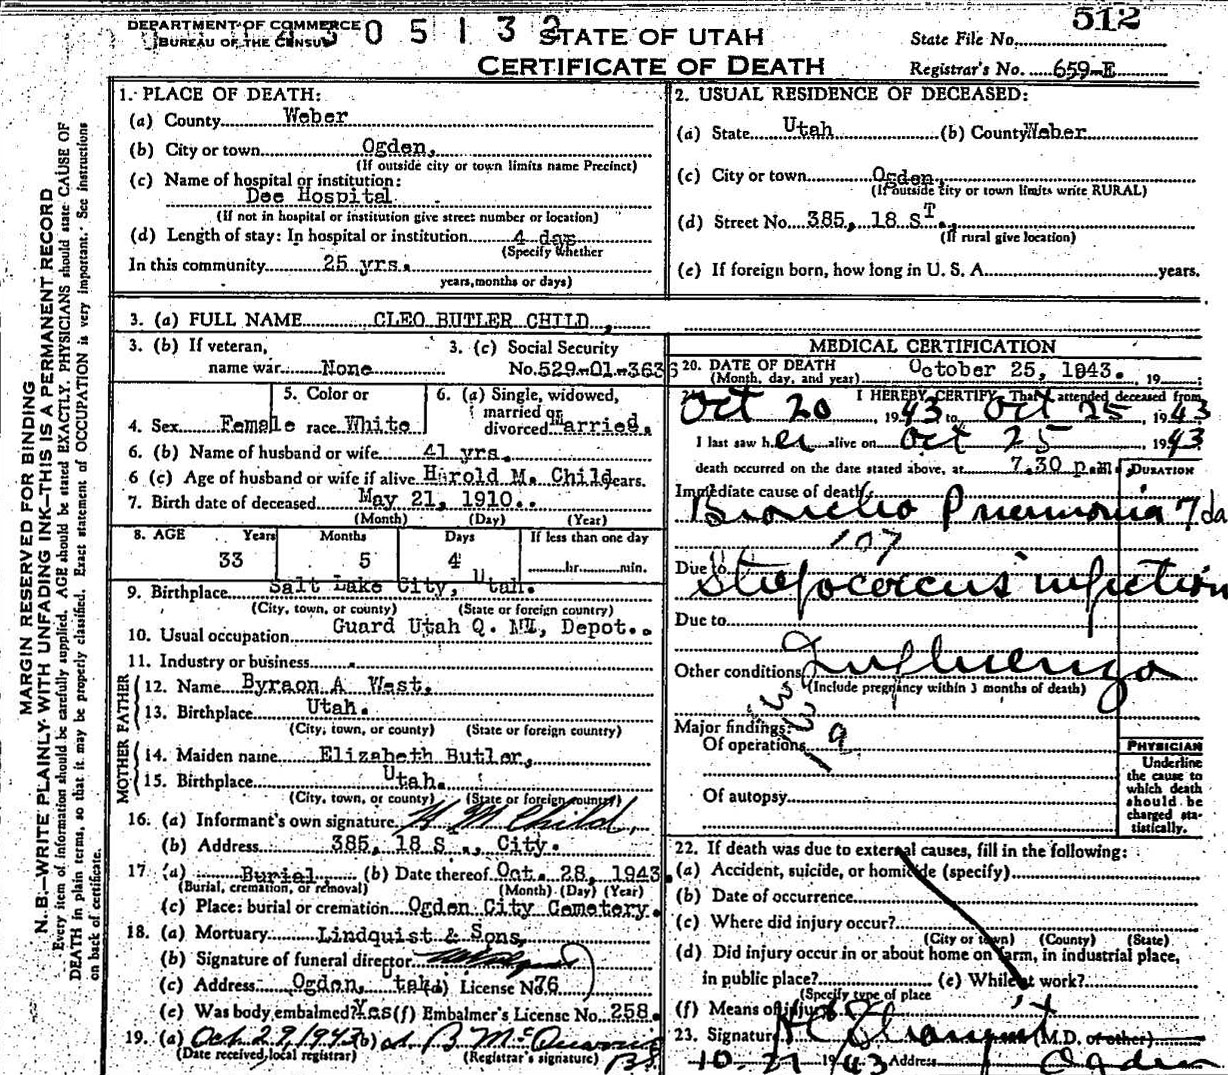 DEPARTMENT OF COMMERCE
BUREAU OF THE CENSUS
4305132
STATE OF UTAH
CERTIFICATE OF DEATH
State File No. 512
Registrar's No. 659-E
MARGIN RESERVED FOR BINDING
N. B.—WRITE PLAINLY WITH UNFADING INK—THIS IS A PERMANENT RECORD
Every item of information should be carefully supplied. AGE should be stated EXACTLY. PHYSICIANS should state CAUSE OF
DEATH in plain terms, so that it may be properly classified. Exact statement of OCCUPATION is very important. See instructions
on back of certificate.
1. PLACE OF DEATH:
(a) County Weber
(b) City or town Ogden,
(If outside city or town limits name Precinct)
(c) Name of hospital or institution:
Dee Hospital
(If not in hospital or institution give street number or location)
(d) Length of stay: In hospital or institution 4 day
(Specify whether
In this community 25 yrs.
years, months or days)
2. USUAL RESIDENCE OF DECEASED:
(a) State Utah (b) County Weber
(c) City or town Ogden,
(If outside city or town limits write RURAL)
(d) Street No. 385, 18 ST.,
(If rural give location)
(e) If foreign born, how long in U. S. A. years.
3. (a) FULL NAME CLEO BUTLER CHILD,
3. (b) If veteran,
name war None
3. (c) Social Security
No. 529-01-3636
4. Sex Female
5. Color or
race White
6. (a) Single, widowed,
married or
divorced Married.
6. (b) Name of husband or wife 41 yrs.
6 (c) Age of husband or wife if alive Harold M. Child years.
7. Birth date of deceased May 21, 1910..
(Month) (Day) (Year)
8. AGE Years Months Days If less than one day
33 5 4 hr. min.
9. Birthplace Salt Lake City, Utah.
(City, town, or county) (State or foreign country)
10. Usual occupation Guard Utah Q. M, Depot..
11. Industry or business
FATHER
12. Name Byraon A West.
13. Birthplace Utah.
(City, town, or county) (State or foreign country)
MOTHER
14. Maiden name Elizabeth Butler,
15. Birthplace Utah.
(City, town, or county) (State or foreign country)
16. (a) Informant's own signature H M Child,
(b) Address 385, 18 S ., City.
17 (a) Burial (b) Date thereof Oct. 28, 1943.
(Burial, cremation, or removal) (Month) (Day) (Year)
(c) Place: burial or cremation Ogden City Cemetery.
18. (a) Mortuary Lindquist & Sons,
(b) Signature of funeral director
(c) Address Ogden, tah (d) License No. 76
(e) Was body embalmed? Yes (f) Embalmer's License No. 258.
19. (a) Oct 27, 1943 (b)
(Date received local registrar) (Registrar's signature)
MEDICAL CERTIFICATION
20. DATE OF DEATH October 25, 1943. , 19 ;
(Month, day, and year)
I HEREBY CERTIFY, That I attended deceased from
Oct 20 , 1943 to Oct 25 , 1943
I last saw her alive on Oct 25 , 1943
death occurred on the date stated above, at 7.30 p.m.
DURATION
Immediate cause of death
Broncho Pneumonia 7 da
107
Due to
Strepococcus infection
Due to
Other conditions Influenza
(Include pregnancy within 3 months of death)
33
Major findings:
Of operations
19
Of autopsy
PHYSICIAN
Underline
the cause to
which death
should be
charged sta-
tistically.
22. If death was due to external causes, fill in the following:
(a) Accident, suicide, or homicide (specify)
(b) Date of occurrence
(c) Where did injury occur?
(City or town) (County) (State)
(d) Did injury occur in or about home on farm, in industrial place,
in public place? (e) While at work?
(Specify type of place
(f) Means of injury
23. Signature (M.D. or other)
10-27 1943 Address Ogden